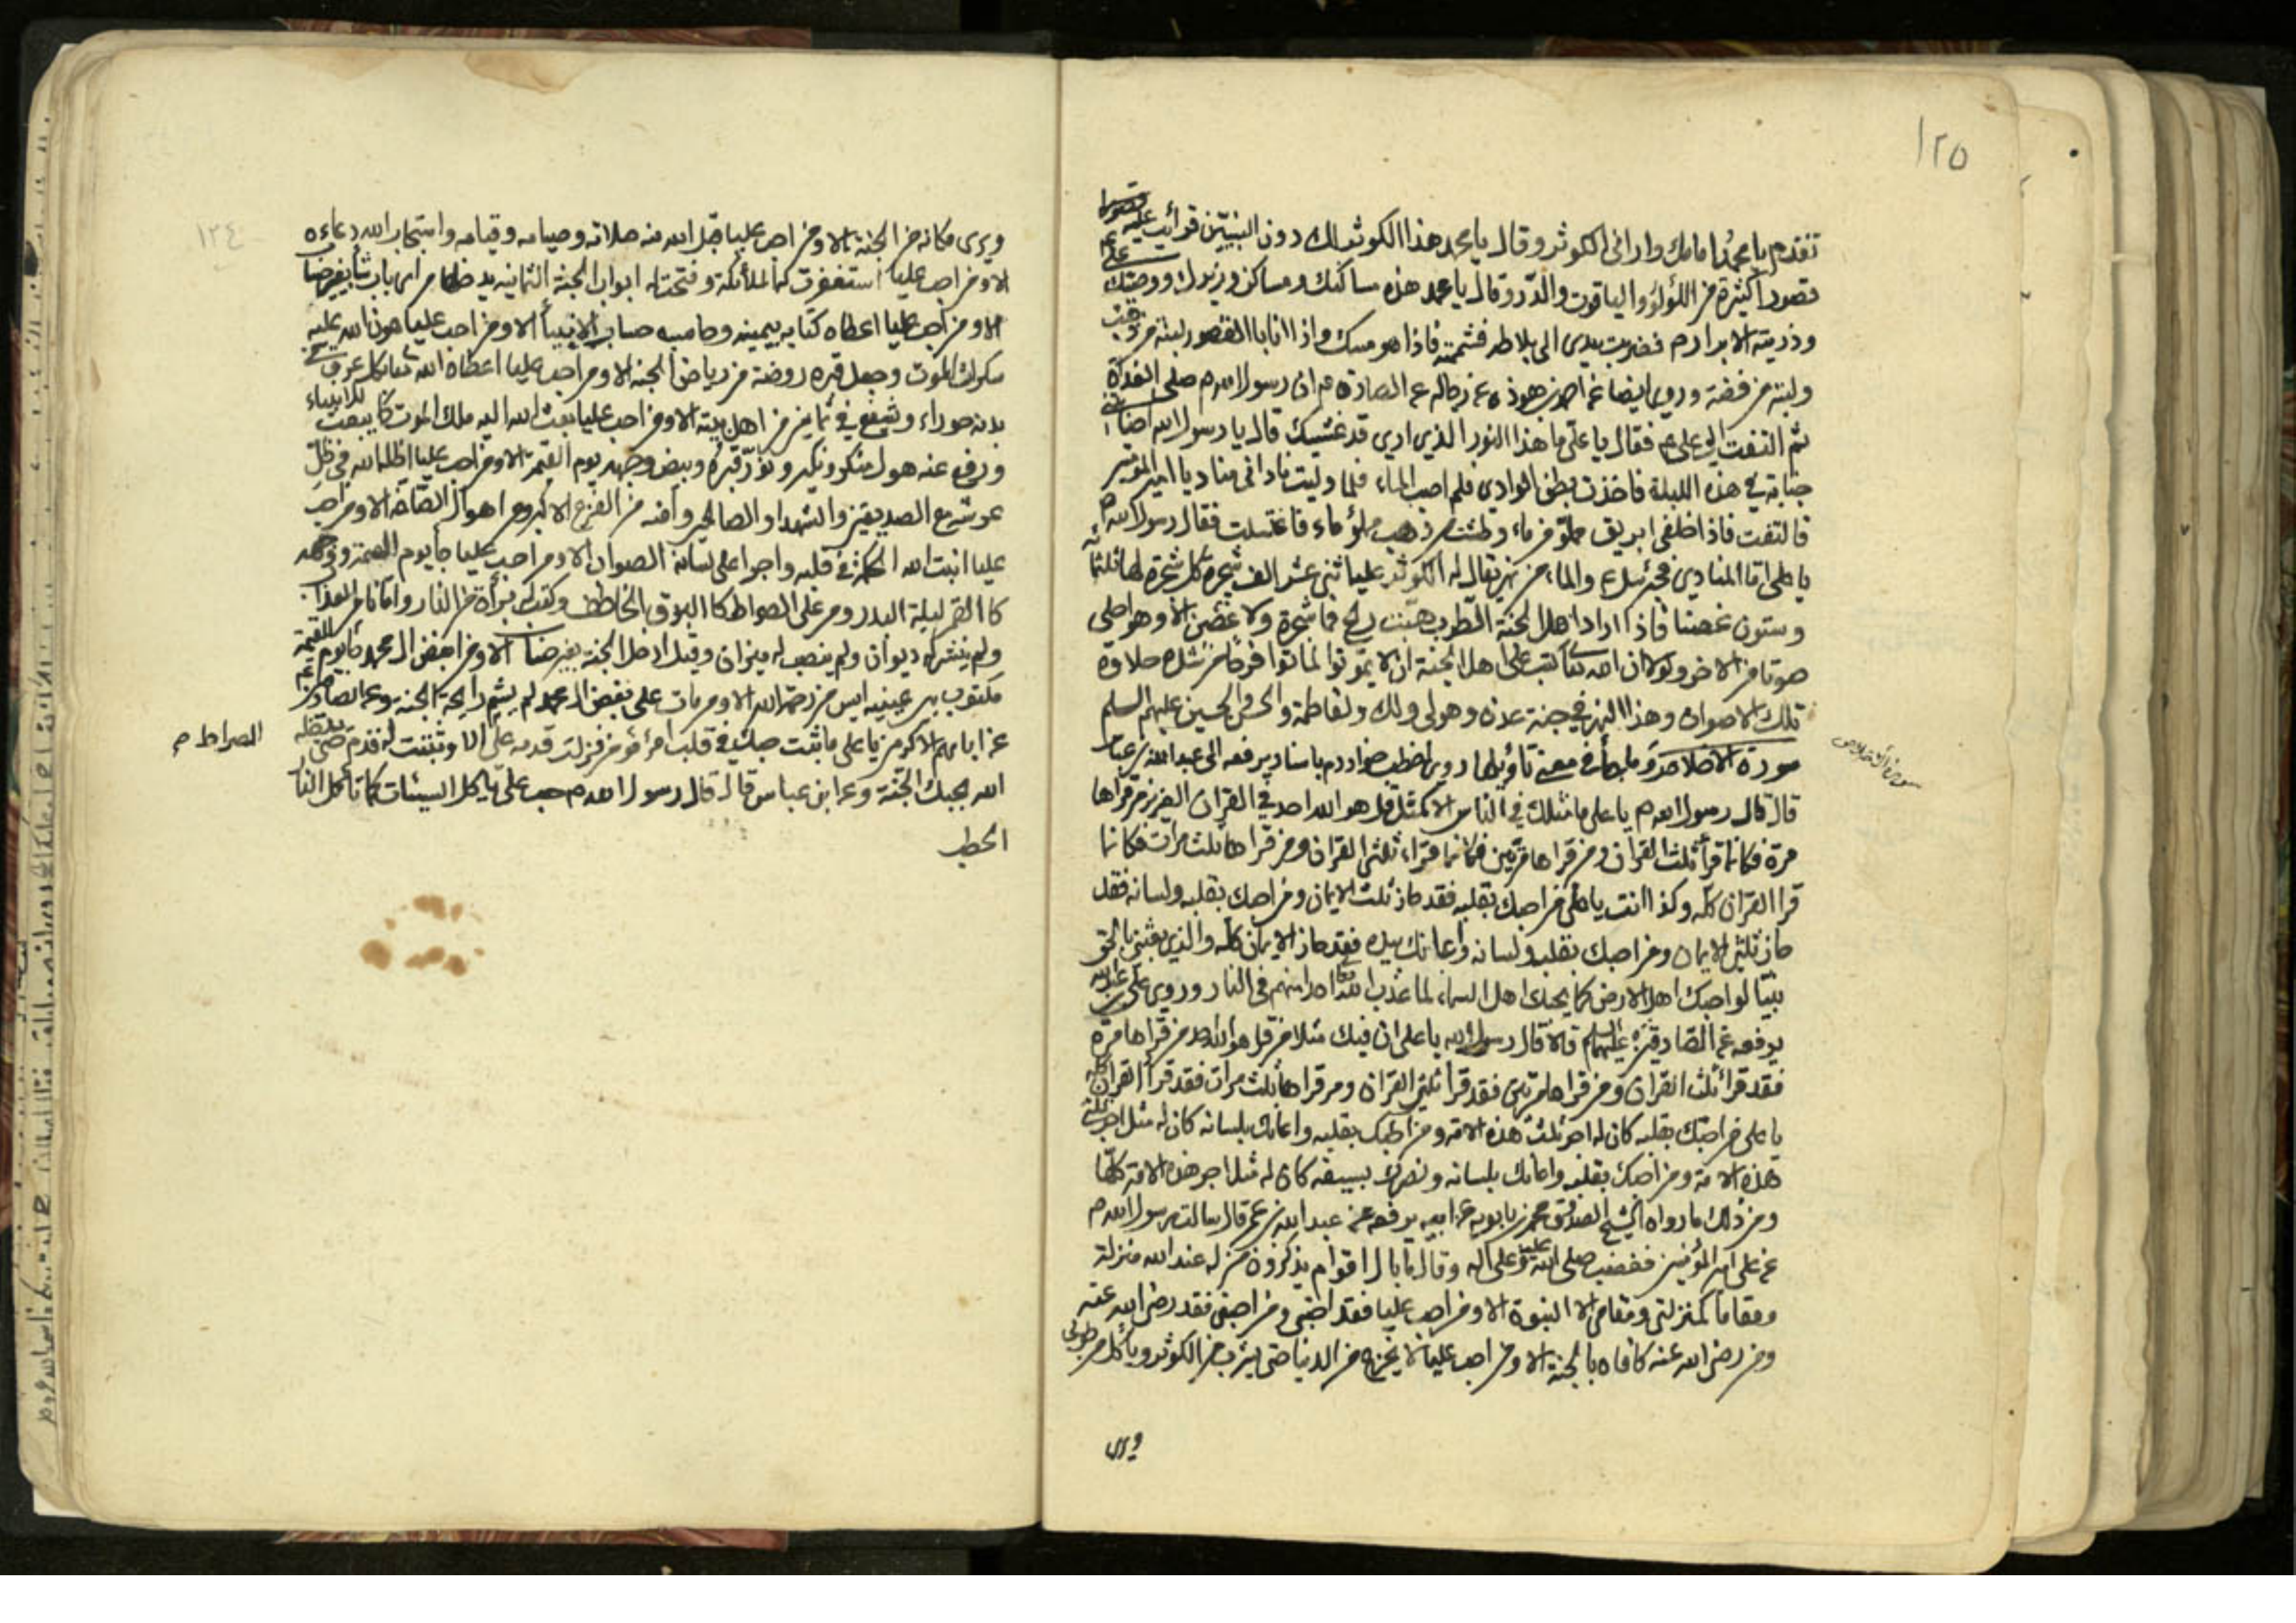 ١٢٥
تقدم يا محمد امامك واراني الكوثر وقال يا محمد هذا الكوثر لك دون النبيين فرأيت عليه قصورا
قصورا كثيرة من اللؤلؤ والياقوت والدر وقال يا محمد هذه مساكنك ومساكن وزيرك ووصيك على
وذريته الابرار م فضربت بيدي الى بلاطه فشممته فاذا هو مسك واذا انا بالقصور لبنة من ذهب
ولبنة من فضة وروى ايضا عن احمد بن هوذه عن رجاله عن الصادق ان رسول الله ص صلى الغداة
ثم التفت الى علي ع فقال يا علي ما هذا النور الذي ارى قد غشيك قال يا رسول الله اصابتني
جنابة في هذه الليلة فاخذت بطن الوادي فلم اصب الماء فلما وليت ناداني مناد يا امير المؤمنين
فالتفت فاذا خلفي ابريق مملو من ماء وطشت من ذهب مملؤ ماء فاغتسلت فقال رسول الله ص
يا علي اما المنادي فجبرئيل ع والماء من نهر يقال له الكوثر عليه اثنى عشر الف شجرة كل شجرة لها ثلثمائه
وستون غصنا فاذا اراد اهل الجنة الطرب هبت ريح فما من شجرة ولا غصن الا وهو احلى
صوتا من الاخر ولولا ان الله تعالى كتب على اهل الجنة ان لا يموتوا لماتوا فرحا من شدة حلاوة
تلك الاصوات وهذا النهر في جنة عدن وهو لي ولك ولفاطمة والحسن والحسين عليهم السلم
سورة الاخلاص وما جاء في معنى تاويلها روى اخطب خوارزم باسناد يرفعه الى عبد الله بن عباس
سورة الاخلاص
قال قال رسول الله ص يا علي ما مثلك في الناس الا كمثل قل هو الله احد في القران العزيز من قراها
مرة فكانما قرأ ثلث القران ومن قراها مرتين فكانما قراء ثلثي القران ومن قراها ثلث مرات فكانما
قرا القران كله وكذا انت يا علي من احبك بقلبه فقد حاز ثلث الايمان ومن احبك بقلبه ولسانه فقد
حاز ثلثي الايمان ومن احبك بقلبه ولسانه واعانك بيده فقد حاز الايمان كله والذي بعثني بالحق
نبيا لو احبك اهل الارض كما يحبك اهل السماء لما عذب الله احدا منهم في النار وروى علي بن عبد الله
يرفعه عن الصادقين عليهما السلم قالا قال رسول الله يا علي ان فيك مثلا من قل هو الله احد من قراها مرة
فقد قرا ثلث القران ومن قراها مرتين فقد قرا ثلثي القران ومن قراها ثلث مرات فقد قرأ القران كله
يا علي من احبك بقلبه كان له اجر ثلث هذه الامة ومن احبك بقلبه واعانك بلسانه كان له مثل اجر ثلثي
هذه الامة ومن احبك بقلبه واعانك بلسانه ونصرك بسيفه كان له مثل اجر هذه الامة كلها
ومن ذلك ما رواه الشيخ الصدوق محمد بن بابويه عن ابيه يرفعه عن عبد الله بن عمر قال سالت رسول الله ص
عن علي امير المؤمنين فغضب صلى الله عليه وعلى اله وقال ما بال اقوام يذكرون من له عند الله منزلة
ومقاما كمنزلتي ومقامي الا النبوة الا ومن احب عليا فقد احبني ومن احبني فقد رضي الله عنه
ومن رضي الله عنه كافاه بالجنة الا ومن احب عليا لا يخرج من الدنيا حتى يشرب من الكوثر وياكل من طوبى
ويرى
١٢٤
ويرى مكانه من الجنة الا ومن احب عليا قبل الله منه صلاته وصيامه وقيامه واستجاب الله دعاءه
الا ومن احب عليا استغفرت له الملائكة وفتحت له ابواب الجنة الثمانيه يدخلها من اي باب شاء بغير حساب
الا ومن احب عليا اعطاه كتابه بيمينه وحاسبه حساب الانبيأ الا ومن احب عليا هون الله عليه
سكرات الموت وجعل قبره روضة من رياض الجنة الا ومن احب عليا اعطاه الله تعالى بكل عرق في
بدنه حوراء وشفع في ثمانين من اهل بيته الا ومن احب عليا بعث الله اليه ملك الموت كما يبعث للانبياء
ودفع عنه هول منكر ونكير ونور قبره وبيض وجهه يوم القيمة الا ومن احب عليا اظله الله في ظل
عرشه مع الصديقين والشهداء والصالحين وامنه من الفزع الاكبر ومن اهوال الصاخه الا ومن احب
عليا اثبت الله الحكمة في قلبه واجرا على لسانه الصواب الا ومن احب عليا جا يوم القيمة ووجهه
كالقمر ليلة البدر ومر على الصراط كالبرق الخاطف وكتب له برأة من النار وامانا من العذاب
ولم ينشر له ديوان ولم ينصب له ميزان وقيل ادخل الجنة بغير حساب الا ومن ابغض ال محمد جا يوم القيمة
مكتوب بين عينيه ايس من رحمة الله الا ومن مات على بغض ال محمد لم يشم رايحة الجنة وعن الصادق ع
عن ابائهم الاكرمين يا علي ما ثبت حبك في قلب امرئ مؤمن فزلت قدمه على الا وثبتت له قدم حتى يدخله
الصراط ص
الله بحبك الجنة وعن ابن عباس قال قال رسول الله ص حب علي ياكل السيئات كما تأكل النار
الحطب